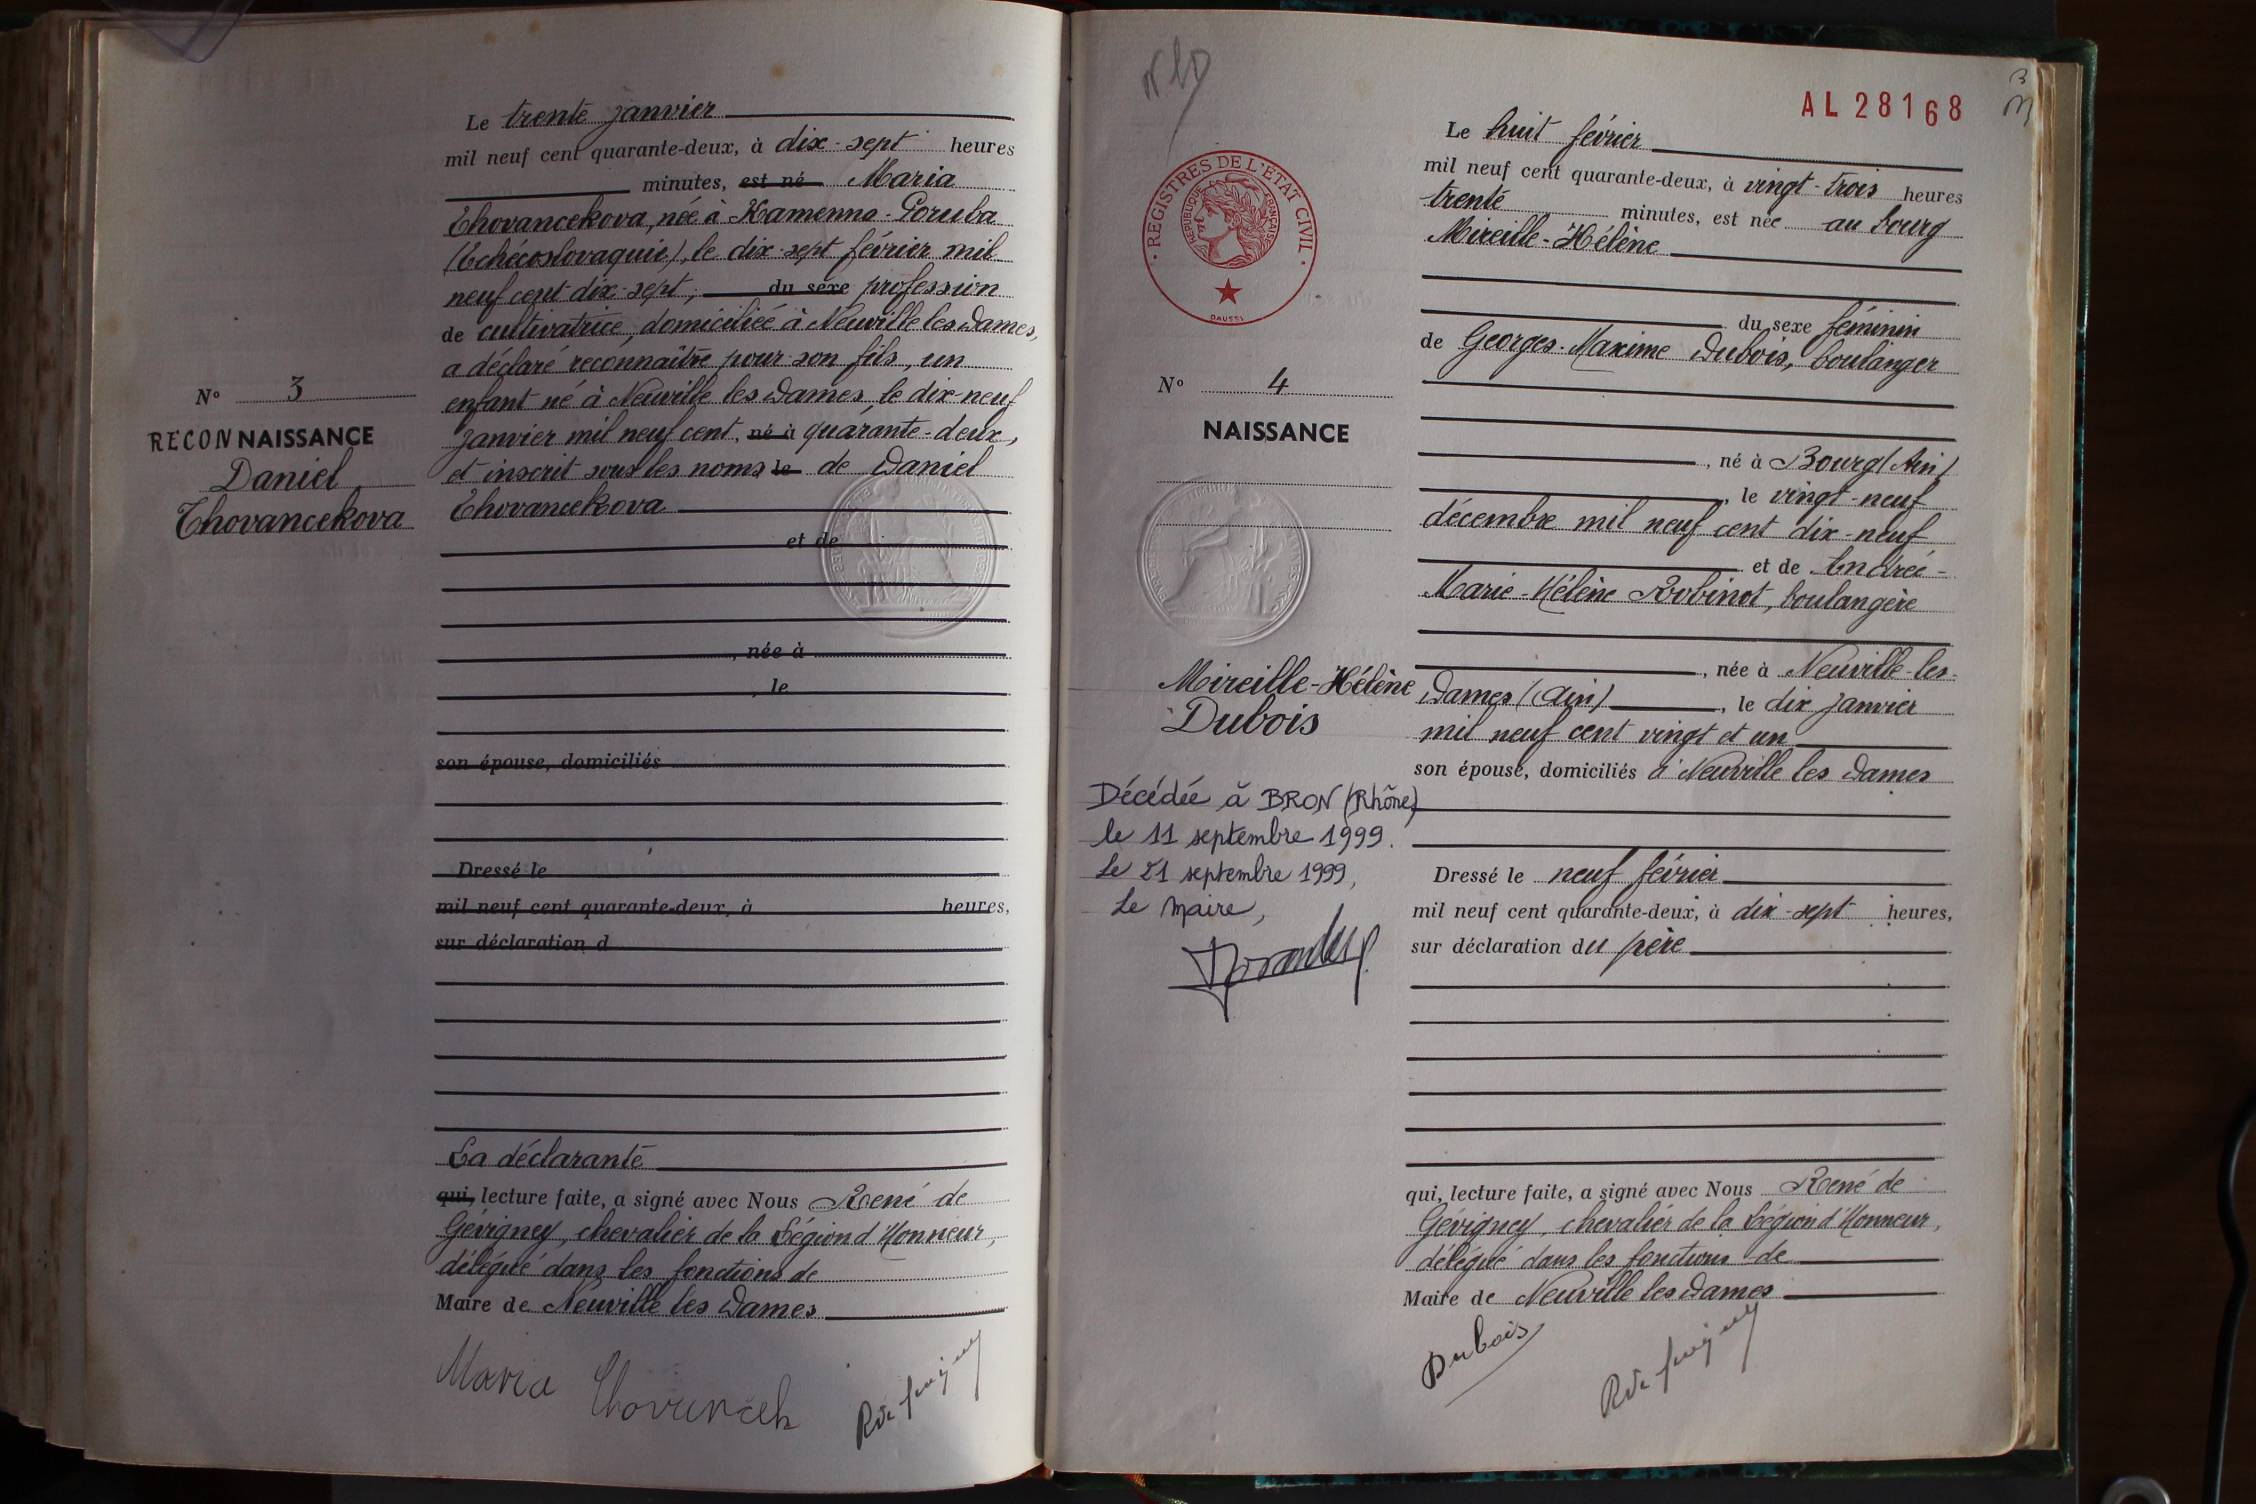 N° 3
RECONNAISSANCE
Daniel
Chovancekova
Le trente janvier
mil neuf cent quarante-deux, à dix-sept heures
minutes, est né Maria
Chovancekova, née à Kamenna-Poruba
(Tchécoslovaquie), le dix-sept février mil
neuf cent dix-sept, du sexe profession
de cultivatrice, domiciliée à Neuville les Dames,
a déclaré reconnaître pour son fils, un
enfant né à Neuville les Dames, le dix-neuf
janvier mil neuf cent né à quarante-deux,
et inscrit sous les noms le de Daniel
Chovancekova
et de
, née à
, le
son épouse, domiciliés
Dressé le
mil neuf cent quarante-deux, à heures,
sur déclaration d
La déclarante
qui, lecture faite, a signé avec Nous René de
Gévigney, chevalier de la Légion d'Honneur,
délégué dans les fonctions de
Maire de Neuville les Dames
Maria Chovancek
AL 28168
REGISTRES DE L'ETAT CIVIL
REPUBLIQUE FRANÇAISE
DAUSSI
N° 4
NAISSANCE
Mireille-Hélène
Dubois
Décédée à BRON (Rhône)
le 11 septembre 1999.
Le 21 septembre 1999,
Le Maire,
Le huit février
mil neuf cent quarante-deux, à vingt-trois heures
trente minutes, est née au bourg
Mireille-Hélène
du sexe féminin
de Georges-Maxime Dubois, boulanger
, né à Bourg (Ain)
, le vingt-neuf
décembre mil neuf cent dix-neuf
et de Andrée-
Marie-Hélène Robinot, boulangère
, née à Neuville-les-
Dames (Ain), le dix janvier
mil neuf cent vingt et un
son épouse, domiciliés à Neuville les Dames
Dressé le neuf février
mil neuf cent quarante-deux, à dix-sept heures,
sur déclaration du père
qui, lecture faite, a signé avec Nous René de
Gévigney, chevalier de la Légion d'Honneur,
délégué dans les fonctions de
Maire de Neuville les Dames
Dubois